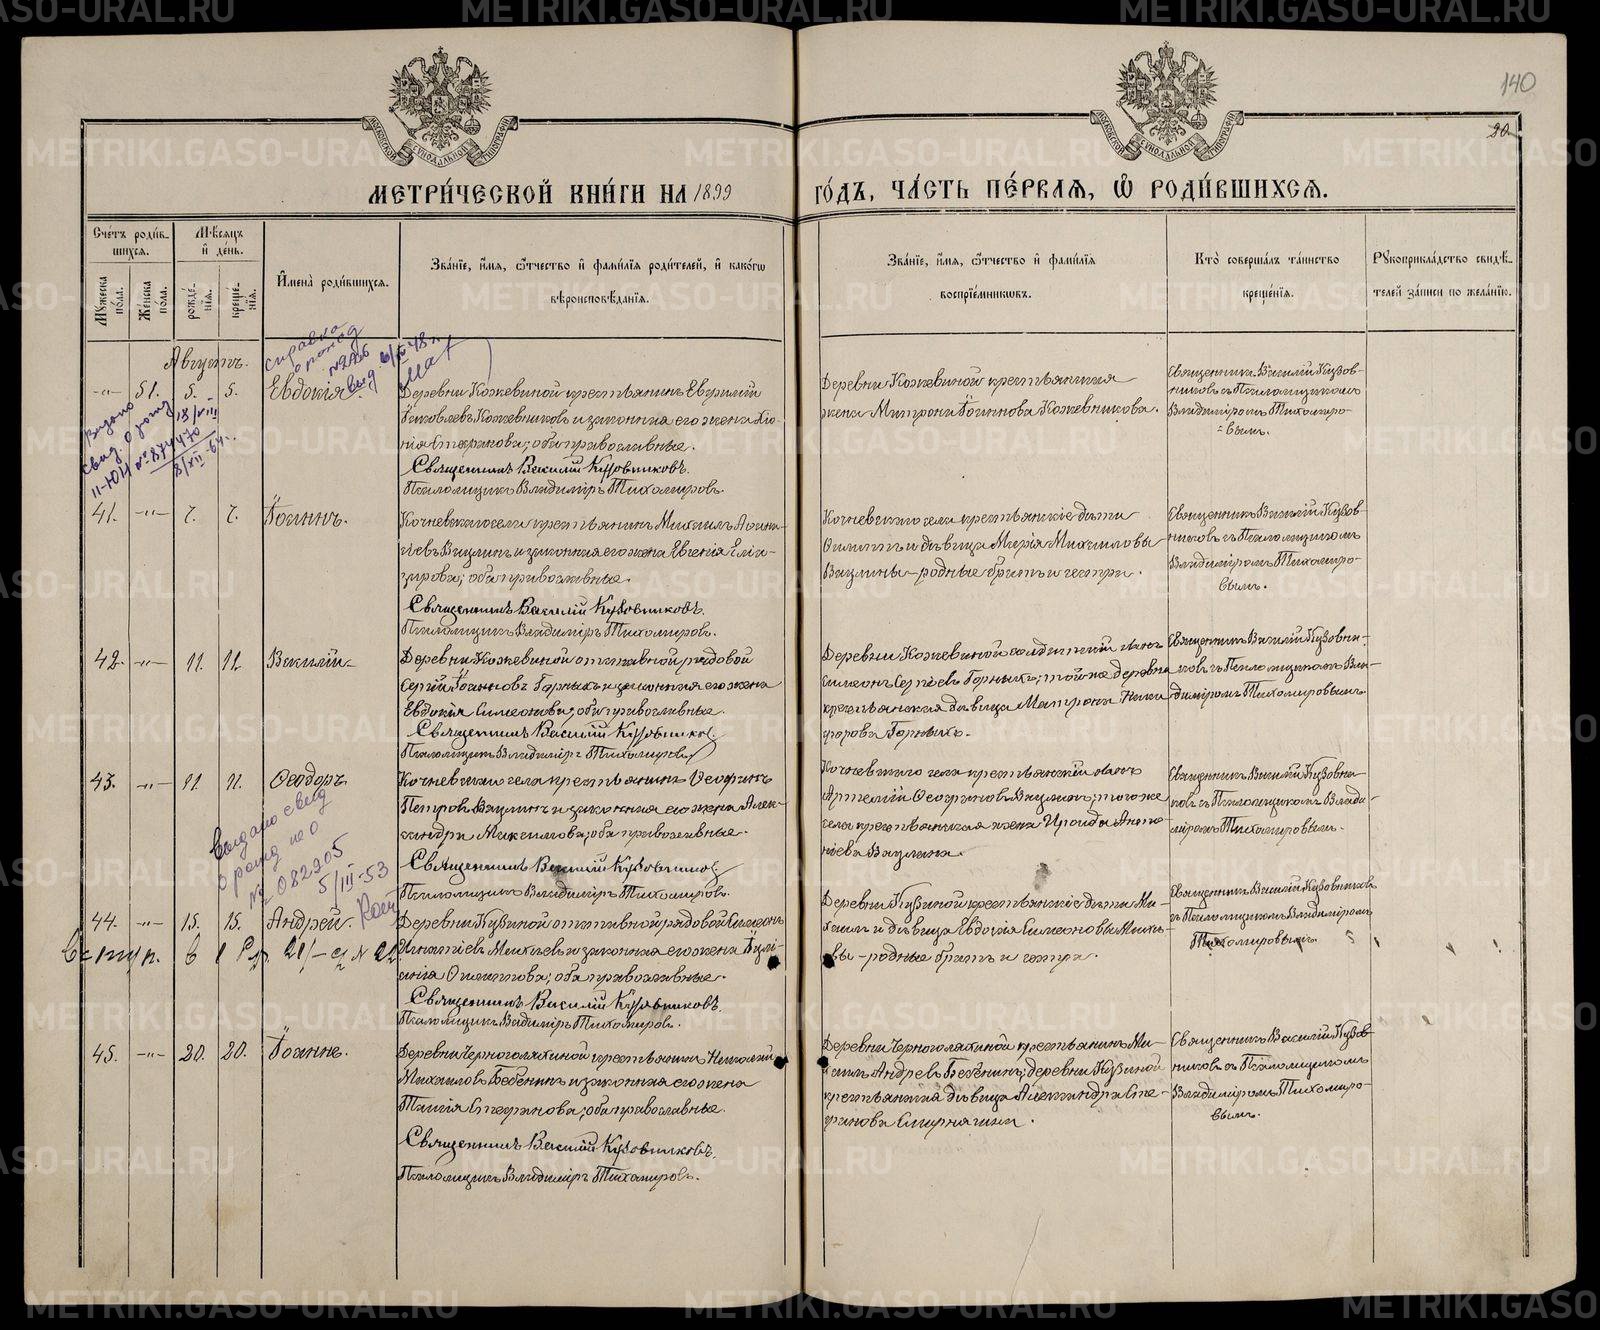 140
20
МЕТРИ́ЧЕСКОЙ КНИ́ГИ НА 1899
ГО́ДЪ, ЧА́СТЬ ПЕ́РВАЯ, Ѽ РОДИ́ВШИХСЯ.
Сче́тъ роди́в-
шихся.
Мѣ́сяцъ
и҆ де́нь.
Му́жеска по́ла.
Же́нска по́ла.
рожде́-
нїѧ.
креще́-
нїѧ.
И҆мена̀ роди́вшихся.
Зва́нїе, и҆́мя, ѻ҆́тчество и҆ фами́лїя роди́телей, и҆ како́гѡ
вѣроисповѣ́данїя.
Зва́нїе, и҆́мя, ѻ҆́тчество и҆ фами́лїя
воспрїе́мниковъ.
Кто̀ соверша́лъ та́инство
креще́нїя.
Рꙋкоприкла́дство свидѣ́-
телей за́писи по жела́нїю.
Августъ.
справка
о рожд
№2226
выд.
-„- 51. 5. 5. Евдокія
Деревни Кожевиной крестьянинъ Евфимій
Іаковлевъ Кожевниковъ и законная его жена
Стефанова; оба православные.
Священникъ Василій Кузовниковъ.
Псаломщикъ Владиміръ Тихомировъ.
Деревни Кожевиной крестьянская
жена Матрона Іоаннова Кожевникова.
Священникъ Василій Кузов-
никовъ съ Псаломщикомъ
Владиміромъ Тихомиро-
вымъ.
Выдано
свид. о рожд
II-ЮН № 874470
8/XII-64.
41. -„- 7. 7. Іоаннъ.
Кочневскаго села крестьянинъ Михаилъ
Вяцлинъ и законная его жена Евгенія Еліа-
зарова; оба православные.
Священникъ Василій Кузовниковъ.
Псаломщикъ Владиміръ Тихомировъ.
Кочневскаго села крестьянскіе дѣти
Филиппъ и дѣвица Марія Михаиловы
Вяцлины - родные братъ и сестра.
Священникъ Василій Кузов-
никовъ съ Псаломщикомъ
Владиміромъ Тихомиро-
вымъ.
42. -„- 11. 11. Василій
Деревни Кожевиной отставной рядовой
Сергій Іоанновъ Горныхъ и законная его жена
Евдокія Симеонова; оба православные.
Священникъ Василій Кузовниковъ
Псаломщикъ Владиміръ Тихомировъ
Деревни Кожевиной солдатскій сынъ
Симеонъ Сергіевъ Горныхъ; той же деревни
крестьянская дѣвица Матрона Ники
форова Горныхъ.
Священникъ Василій Кузовни-
ковъ съ Псаломщикомъ Вла-
диміромъ Тихомировымъ
43. -„- 11. 11. Ѳеодоръ
Кочневскаго села крестьянинъ Ѳеофанъ
Петровъ Вяцлинъ и законная его жена Алек-
сандра Максимова; оба православные.
Священникъ Василій Кузовниковъ
Псаломщикъ Владиміръ Тихомировъ.
Кочневскаго села крестьянскій сынъ
Артемій Ѳеофановъ Вяцлинъ; того же
села крестьянская жена Ираида
Вяцлина.
Священникъ Василій Кузовни
ковъ съ Псаломщикомъ Влади-
міромъ Тихомировымъ.
Выдано свид
о рожд по
№ 082905
5/III-53
44. -„- 15. 15. Андрей.
Деревни Кузиной отставной рядовой Симеонъ
Игнатіевъ и законная его жена Іулі-
анія Филиппова; оба православные.
Священникъ Василій Кузовниковъ.
Псаломщикъ Владиміръ Тихомировъ.
Деревни Кузиной крестьянскіе дѣти Ми-
хаилъ и дѣвица Евдокія Симеоновы
- родные братъ и сестра.
Священникъ Василій Кузовниковъ
съ Псаломщикомъ Владиміромъ
Тихомировымъ
45. -„- 20. 20. Іоаннъ.
Деревни Черноголяхиной крестьянинъ Николай
Михаиловъ Бабенинъ и законная его жена
Таисія Стефанова; оба православные.
Священникъ Василій Кузовниковъ.
Псаломщикъ Владиміръ Тихомировъ.
Деревни Черноголяхиной крестьянинъ Ми-
хаилъ Андреевъ Бабенинъ; деревни Кузиной
крестьянская дѣвица Александра Сте-
фанова
Священникъ Василій Кузов-
никовъ съ Псаломщикомъ
Владиміромъ Тихомиро-
вымъ.
METRIKI.GASO-URAL.RU